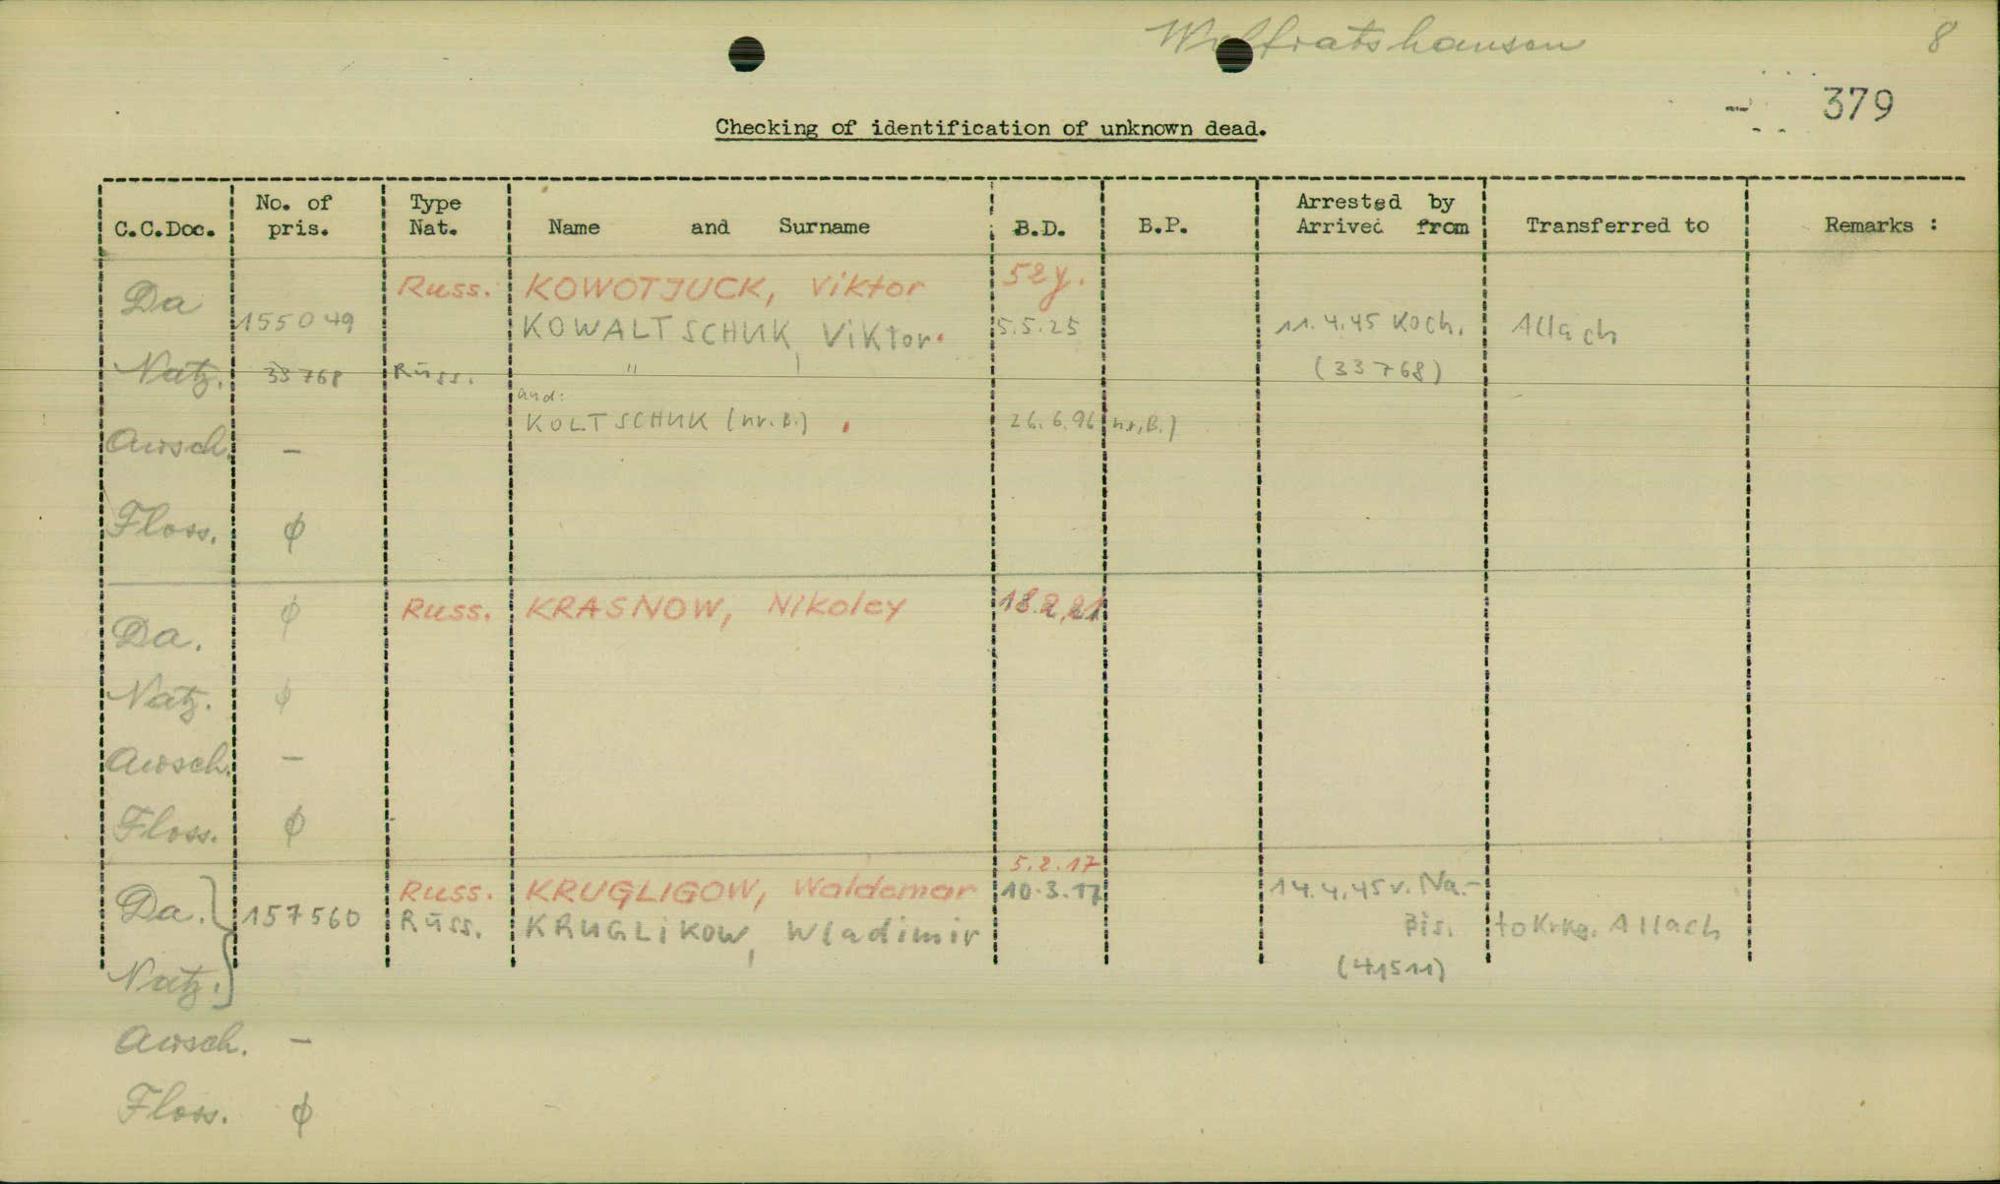 Wolfratshausen 8
379
Checking of identification of unknown dead.
C.C.Doc. No. of pris. Type Nat. Name and Surname B.D. B.P. Arrested by Arrived from Transferred to Remarks :
Russ. KOWOTJUCK, Viktor 52y.
Da 155049 KOWALTSCHUK, Viktor. 5.5.25 11.4.45 Koch. Allach
Natz. 33768 Russ. " (33768)
and:
KOLTSCHUK (nr.B.) 26.6.96 nr.B.)
Ausch. -
Floss. ϕ
Da. ϕ Russ. KRASNOW, Nikoley 18.2.21
Natz. ϕ
Ausch. -
Floss. ϕ
5.2.17
Da. Russ. KRUGLIGOW, Waldemar 10.3.17 14.4.45 v. Na.-
157560 Russ. KRUGLIKOW, Wladimir Bis. to Krkg. Allach
Natz. (41511)
Ausch. -
Floss. ϕ